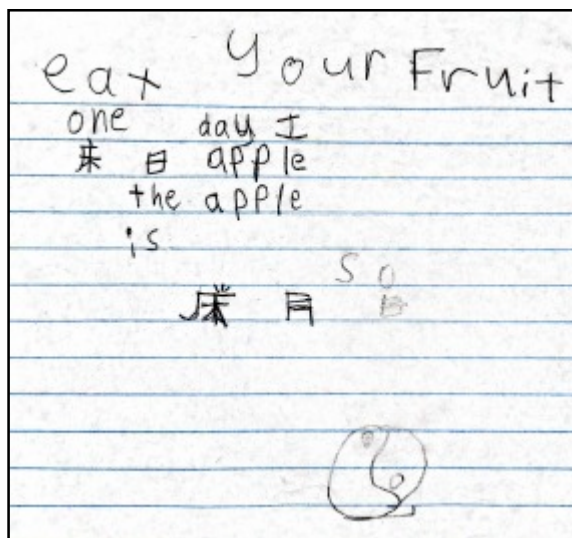 eat your Fruit
one day I
来 日 apple
the apple
is
so
床 月 日